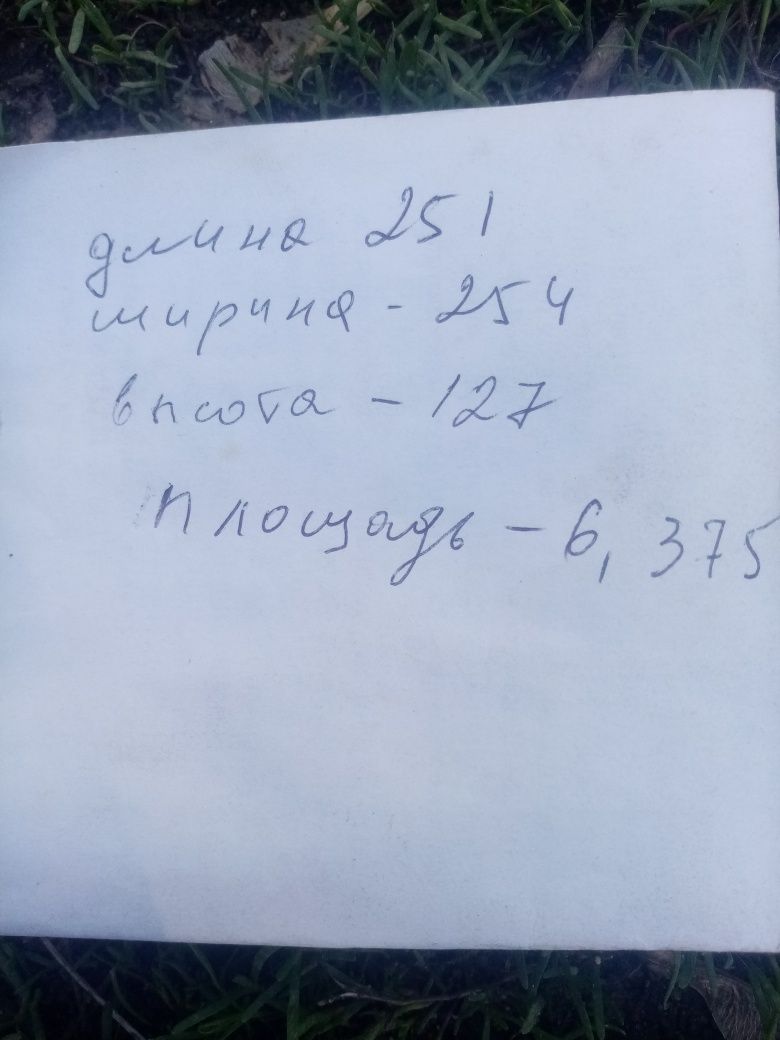 длина 251
ширина - 254
высота - 127
площадь - 6,375